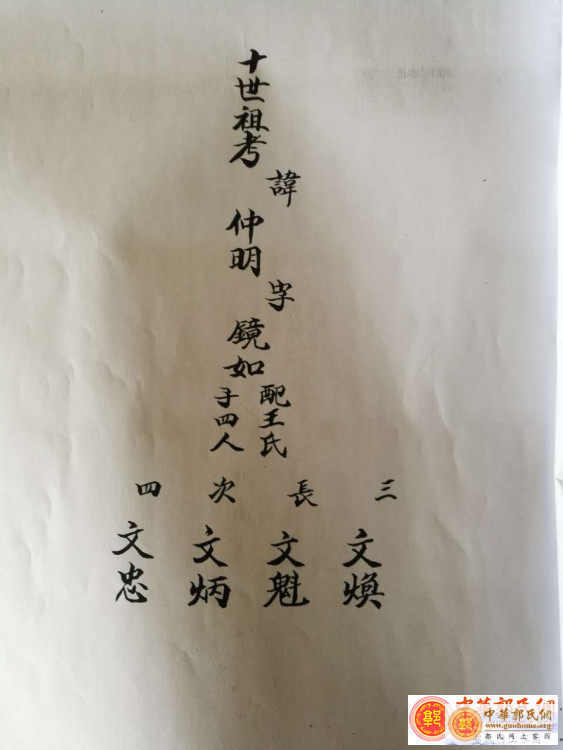 十世祖考
諱
仲明
字
鏡如
配王氏
子四人
三
文煥
長
文魁
次
文炳
四
文忠
中華郭氏網
中華郭氏網
www.guohome.org
郭氏网上家园